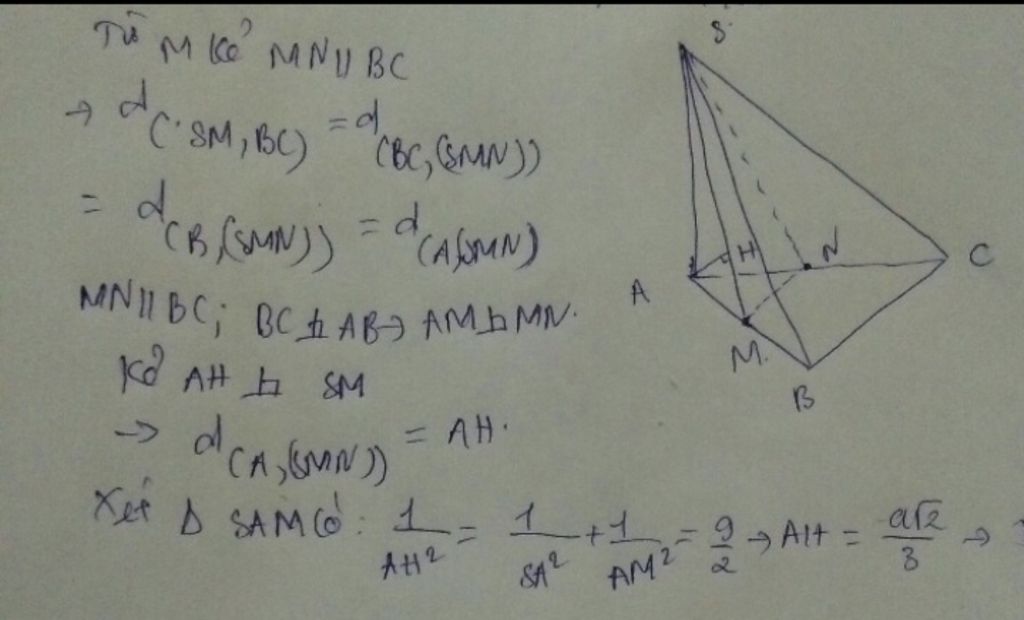 Từ M kẻ MN || BC
→ d(SM, BC) = d(BC, (SMN))
= d(B, (SMN)) = d(A, (SMN)
MN || BC; BC ⊥ AB → AM ⊥ MN.
Kẻ AH ⊥ SM
→ d(A, (SMN)) = AH.
Xét Δ SAM có: 1/AH² = 1/SA² + 1/AM² = 9/2 → AH = a√2/3 →
S
A
H
N
C
M
B